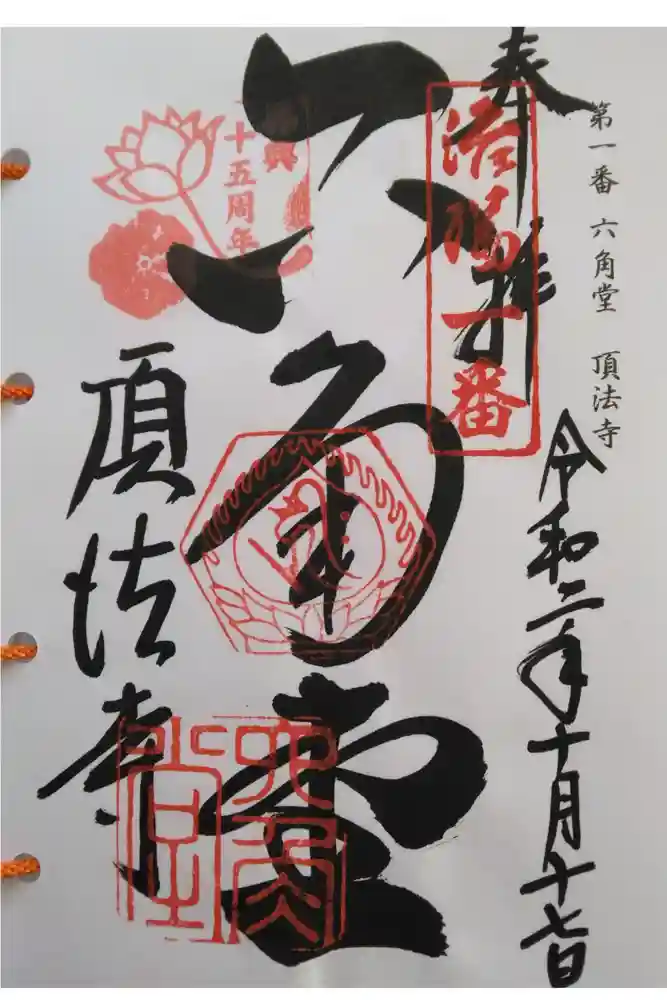 第一番 六角堂 頂法寺
奉拝
洛陽一番
令和二年十月十七日
六角堂
興
十五周年
頂法寺
六角堂